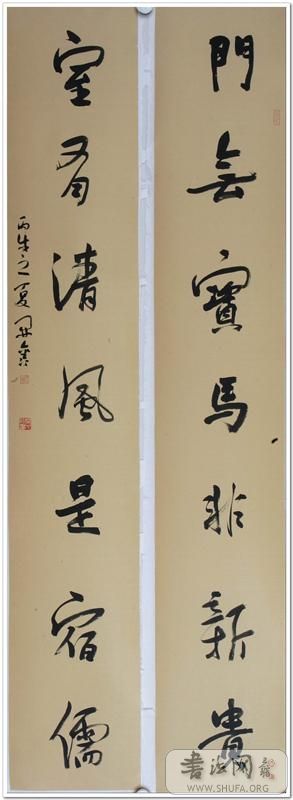 門無寶馬非新貴
室有清風是宿儒
丙戌之夏
書法网
WWW.SHUFA.ORG